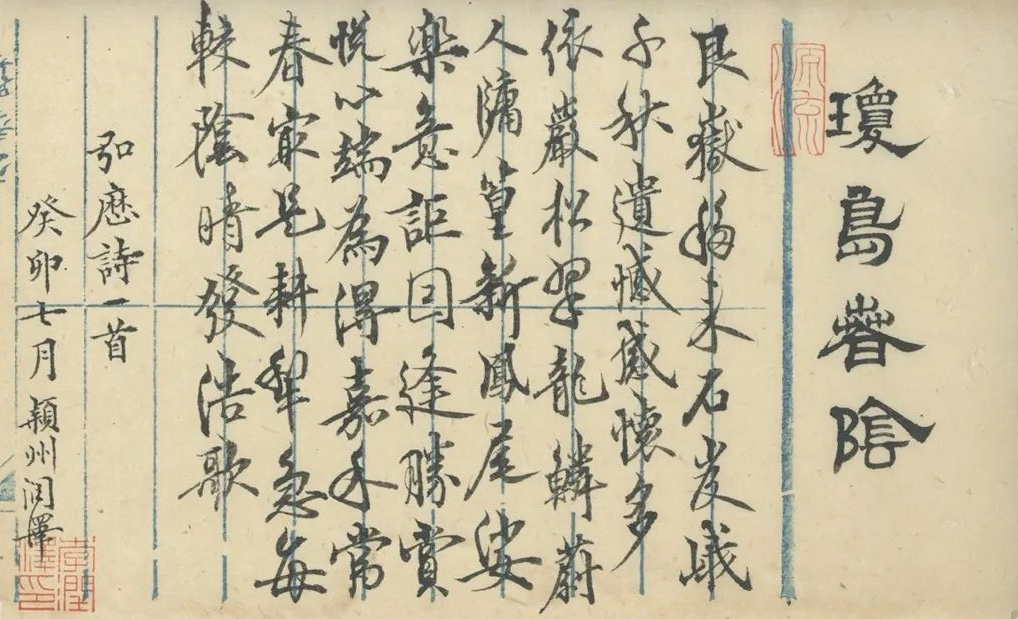 瓊島春陰
艮嶽移来石岌峨
千秋遺憾感懷多
依巖松翠龍鱗蔚
入牖篁新鳳尾娑
楽意詎因逢勝賞
悦心端為得嘉禾常
春最是耕犁急每
較陰晴發浩歌
弘歷詩一首
癸卯七月 穎州潤澤
李潤澤印